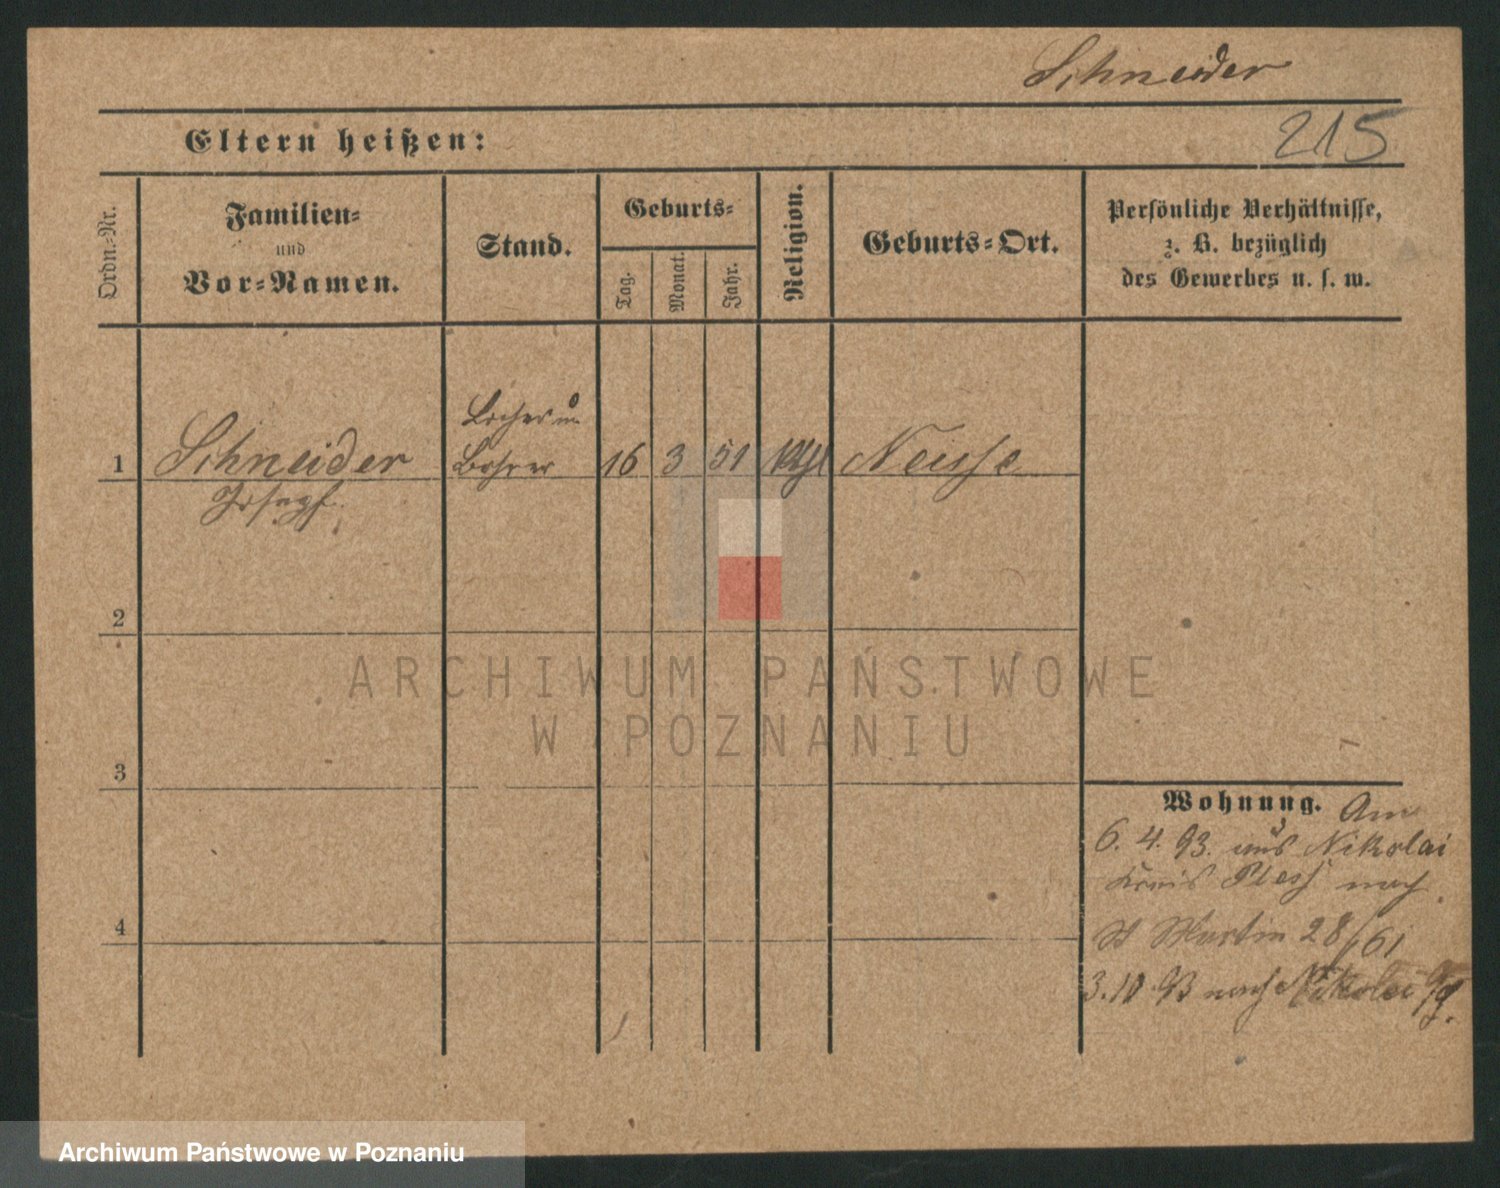 Schneider
215
Eltern heißen:
Ordn.-Nr.
Familien-
und
Vor-Namen.
Stand.
Geburts-
Tag.
Monat.
Jahr.
Religion.
Geburts-Ort.
Persönliche Verhältnisse,
z. B. bezüglich
des Gewerbes u. s. w.
1
Schneider
Josepf
Bohrer
16
3
51
Neisse
2
3
4
Wohnung. Am
6. 4. 93. aus Nikolai
Kreis Pless nach
St Martin 28/61
3.10.93 nach Nikolai
ARCHIWUM PAŃSTWOWE
W POZNANIU
Archiwum Państwowe w Poznaniu